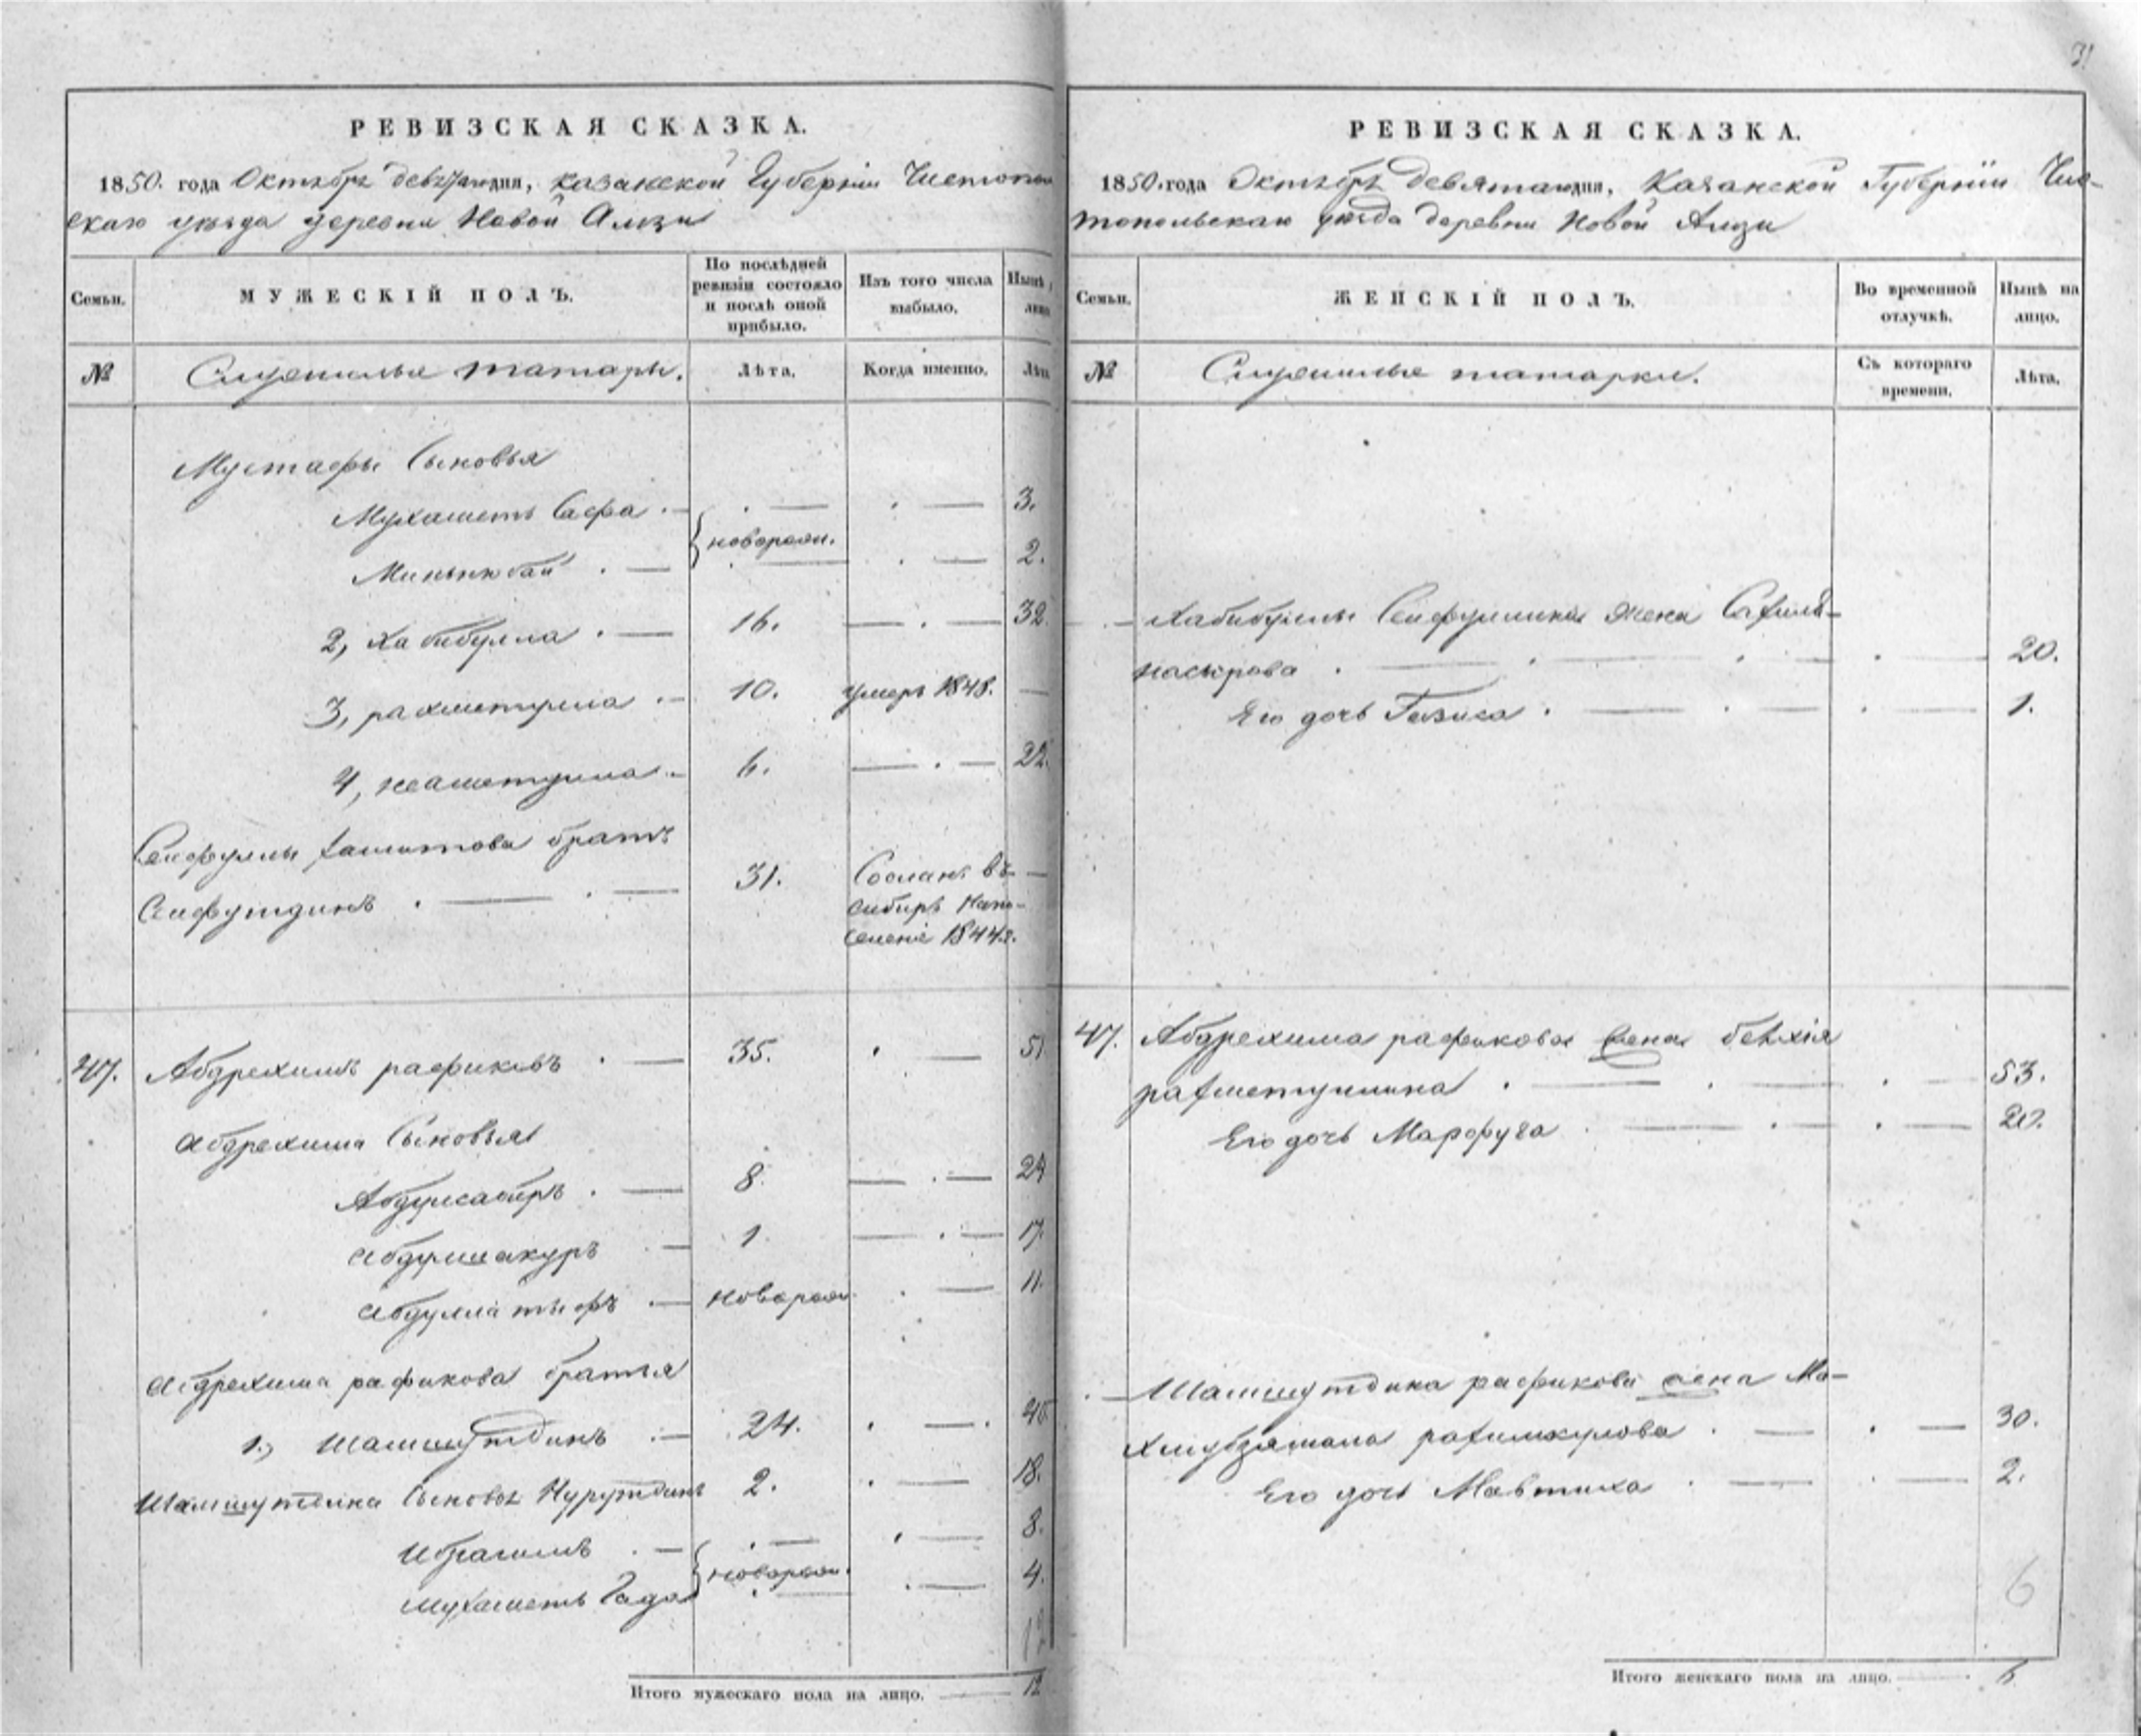 31
РЕВИЗСКАЯ СКАЗКА.
1850. года Октября девятаго дня, Казанской Губернiи Чистополь
скаго уѣзда деревни Новой Амзи
Семьи.
МУЖЕСКIЙ ПОЛЪ.
По послѣдней ревизiи состояло и послѣ оной прибыло.
Изъ того числа выбыло.
Нынѣ лицо
№
Служилые татары.
Лѣта.
Когда именно.
Лѣт
Мустафы Сыновья
Мухаметъ Сафа . — . — . — 3.
новорожд.
Миньюбай . — . — . — 2.
2, Хабибулла . — 16. — . — 32
3, рахметулла . — 10. умеръ 1848. —
4, неаметулла . — 6. — . — 22.
Сейфуллы брать
Сейфутдинъ . — . — 31. Сосланъ въ —
Сибирь Напо-
селенiе 1844г.
47. Абдрехимъ рафиковъ . — 35. . — 51
Абдрехима Сыновья
Абдулсабиръ . — 8. — . — 24
Абдулшакуръ . — 1. — . — 17.
Абдуллатыфъ . — новорожд. . — 11.
Абдрехима рафикова братья
1., Шамшутдинъ . — 24. . — . 40
Шамшутдина Сыновья Нурутдинъ 2. . — 18.
Ибрагимъ . — . — . — 8.
новорожд.
Мухаметъ . — . — 4.
12
Итого мужескаго пола на лицо. — 12
РЕВИЗСКАЯ СКАЗКА.
1850. года Октября девятаго дня, Казанской Губернiи Чис-
топольскаго уѣзда деревни Новой Амзи
Семьи.
ЖЕНСКIЙ ПОЛЪ.
Во временной отлучкѣ.
Нынѣ на лицо.
№
Служилые татарки.
Съ котораго времени.
Лѣта.
— Хабибуллы Сейфуллина жена
насырова . — . — . — . — 20.
Его дочь Газиса . — . — . — 1.
47. Абдрехима рафикова жена
рахметуллина . — . — . — 53.
Его дочь Марфуга . — . — . — 20.
— Шамшутдина рафикова жена Ма-
рахимкулова . — . — 30.
Его дочь Мавтиха . — . — 2.
6
Итого женскаго пола на лицо. — 6